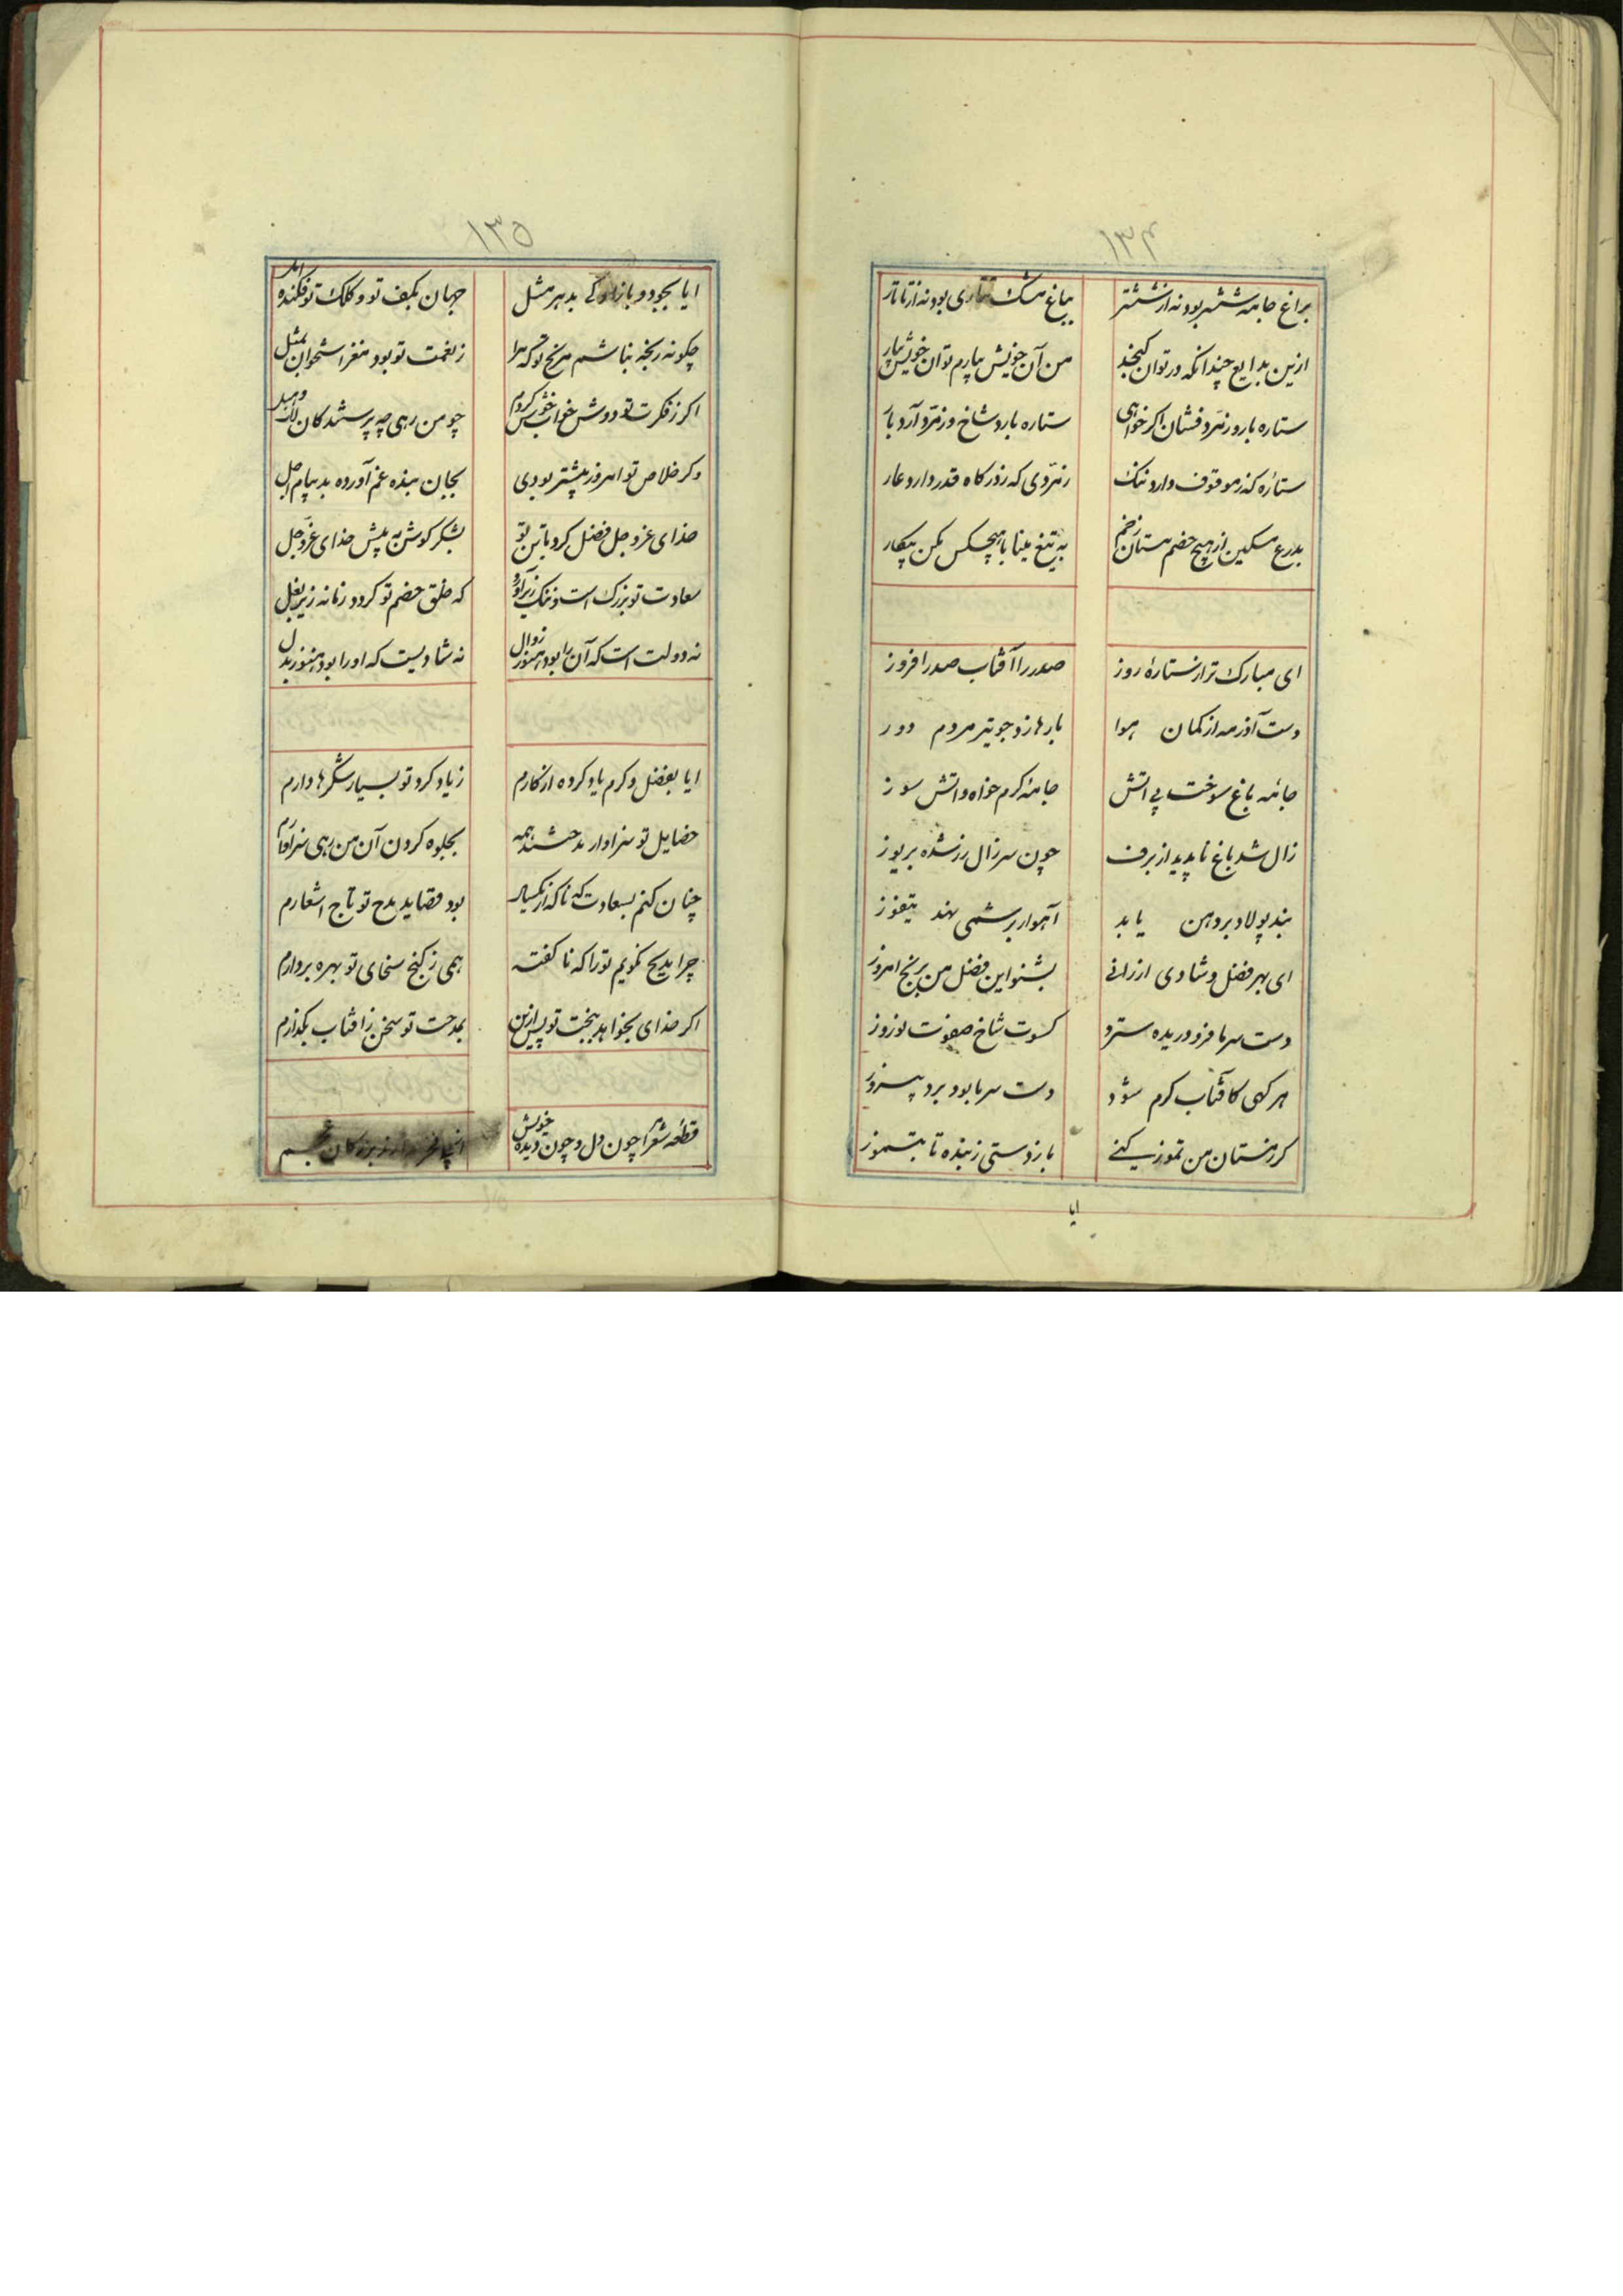 ۱۳۴
براغ جامه ششتر بود نه از ششتر بباغ مشک تتاری بود نه از تاتار
ازین بدایع چندانکه در توان گنجید من آن خویش بیارم تو آن خویش بیار
ستاره بارد وز نرد فشان اگر خواهی ستاره بارد شاخ و زمرد آرد بار
ستاره کز موقوف دارد ننگ زمردی که ز درگاه قدر دارد عار
بدرع مسکین از هیچ خصم مستان زخم به تیغ مینا با هیچکس مکن پیکار
ای مبارک تر از ستارهٔ روز صدر را آفتاب صدر افروز
دست آذر مه از کمان هوا بارها زد چو تیر مردم دوز
جامهٔ باغ سوخت بی آتش جامهٔ گرم خواه و آتش سوز
زال شد باغ ناپدید از برف چون سر زال زر شده بر یوز
بند پولاد بر دهن یابد آهو ار بر شمی نهد تیفوز
ای بهر فضل و شادی ارزانی بشنو این فضل من برنج امروز
دست سرما فرو دریده سترد کسوت شاخ صفوت نوروز
هر کهی کافتاب گرم شود دست سرما بود برد پیروز
گر زمستان من تموز کنی باز دستی ز بنده تا بتموز
ایا
۱۳۵
ایا بجود و بازادگی بدهر مثل جهان بکف تو و کلک تو فکنده امل
چگونه رنجه نباشم برنج تو که مرا ز نعمت تو بود مغز استخوان بمثل
اگر ز فکرت تو دوش خواب خوش کردم چو من رهی چه پرستندگان لات و هبل
وگر خلاص تو امروز پیشتر بودی بجان بنده غم آورده بد پیام اجل
خدای عزوجل فضل کرد با تن تو بشکر کوش به پیش خدای عزوجل
سعادت تو بزرگ است و ننگ زیر آورد که خلق خصم تو گردد زمانه زیر بغل
نه دولت است که آن را بود هنوز زوال نه شادیست که او را بود هنوز بدل
ایا بفضل و کرم یاد کرده از کارم ز یاد کرد تو بسیار شکرها دارم
خصایل تو سزاوار مدحتند همه بجلوه کردن آن من رهی سزاوارم
چنان کنم بسعادت که تا که از یکسال بود قصاید مدح تو تاج اشعارم
چرا مدیح نگویم تو را که نا گفته همی ز گنج سخای تو بهره بردارم
اگر خدای بخواهد ببخت تو پس ازین بمدحت تو سخن ز افتاب بگذارم
قطعه شعر چون دل و چون دیده خویش بزرگان